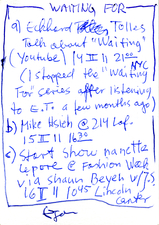 WAITING FOR
a) Eckhard Tolles
Talk about "Waiting"
(Youtube) 14 II 11 21 00
NYC
(I stopped the "Waiting
For series after listening
to E.T. a few months ago)
b) Mike Hsieh @ 214 Laf.
15 II 11 1630
c) Start show nanette
Lepore @ Fashion Week
via Shaun Beyeh w/J.S
16 II 11 1045 Lincoln
Center